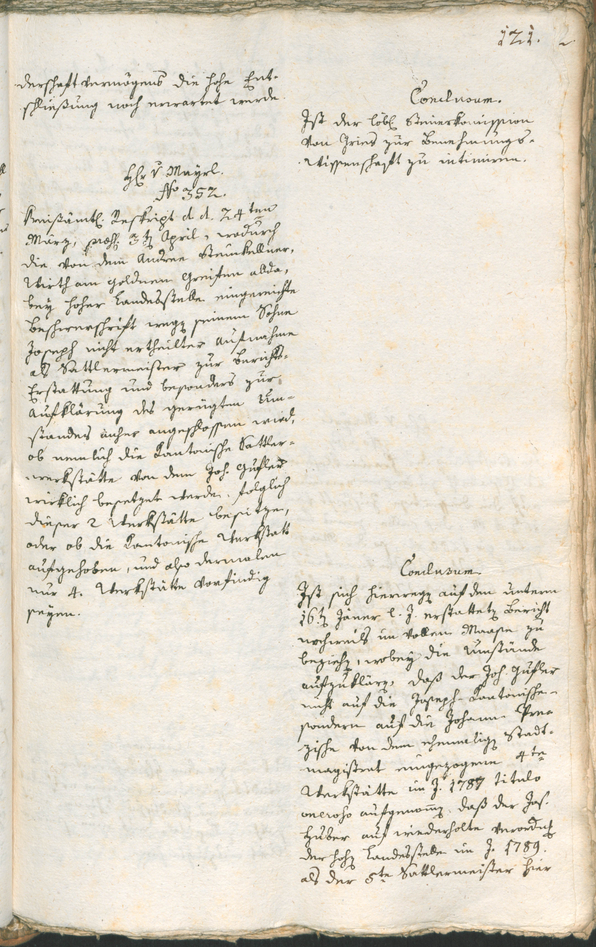 121. 2
derschaft vermögens die hohe Ent-
schließung noch erwartet werde
Conclusum.
Ist der löbl. Steuerkommission
von Gries zur Benehmungs-
Wissenschaft zu intimiren.
Hr. v. Mayrl.
No. 352.
Kreisämtl. Reskript d. d. 24ten
März, praes. 3t. April, wodurch
die von dem Andree Steinkeller,
Wirth am goldnen Greifen allda,
bey hoher Landesstelle eingereichte
Beschwerschrift wegen seinem Sohne
Joseph nicht ertheilter Aufnahme
als Sattlermeister zur Berichts-
Erstattung und besonders zur
Aufklärung des gerügten Um-
standes anher angeschlossen wird,
ob nemlich die Kantonische Sattler-
werkstätte von dem Joh. Gufler
wirklich besetzet werde, folglich
dieser 2 Werkstätte besitze,
oder ob die Kantonische Werkstatt
aufgehoben, und also dermalen
nur 4. Werkstätte vorfindig
seyen.
Conclusum
Ist sich hierwegen auf den unterm
16t. Jäner l. J. erstatteten Bericht
nochmals im vollen Maase zu
beziehen, wobey die Umstände
aufzuklären, daß der Joh. Gufler
nicht auf die Joseph-Kantonische-
sondern auf die Johann
von dem ehemaligen Stadt-
magistrat eingezogene 4te
Werkstätte im J. 1787 titulo
oneroso aufgenommen, daß der Jos.
Huber auf wiederholte Verordnung
der hohen Landesstelle im J. 1789
als der 5te Sattlermeister hier